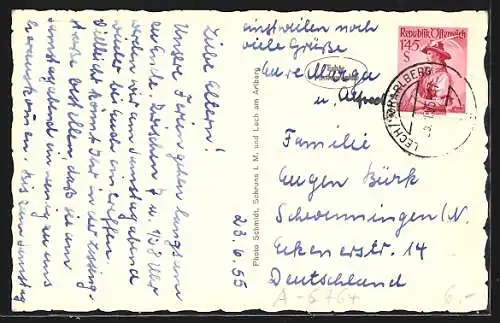 Liebe Eltern!
Unsere Ferien gehen langsam
zu Ende. Zwischen 7 u. 1/2 8 Uhr
werden wir am Samstag abend
wieder bei Euch eintreffen.
Vielleicht könnt Ihr in der
bestellen, daß sie am
Samstagabend ein wenig zu uns
kommen. Bis zum Samstag
einstweilen noch
viele Grüße
Eure Marga
u. Alfred
23.6.55
Photo Schmidt, Schruns i. M. und Lech am Arlberg
Republik Österreich
1.45
S
LECH/ARLBERG
Familie
Eugen Bürk
Schwenningen/N.
Eckenerstr. 14
Deutschland
A-6764
6.-